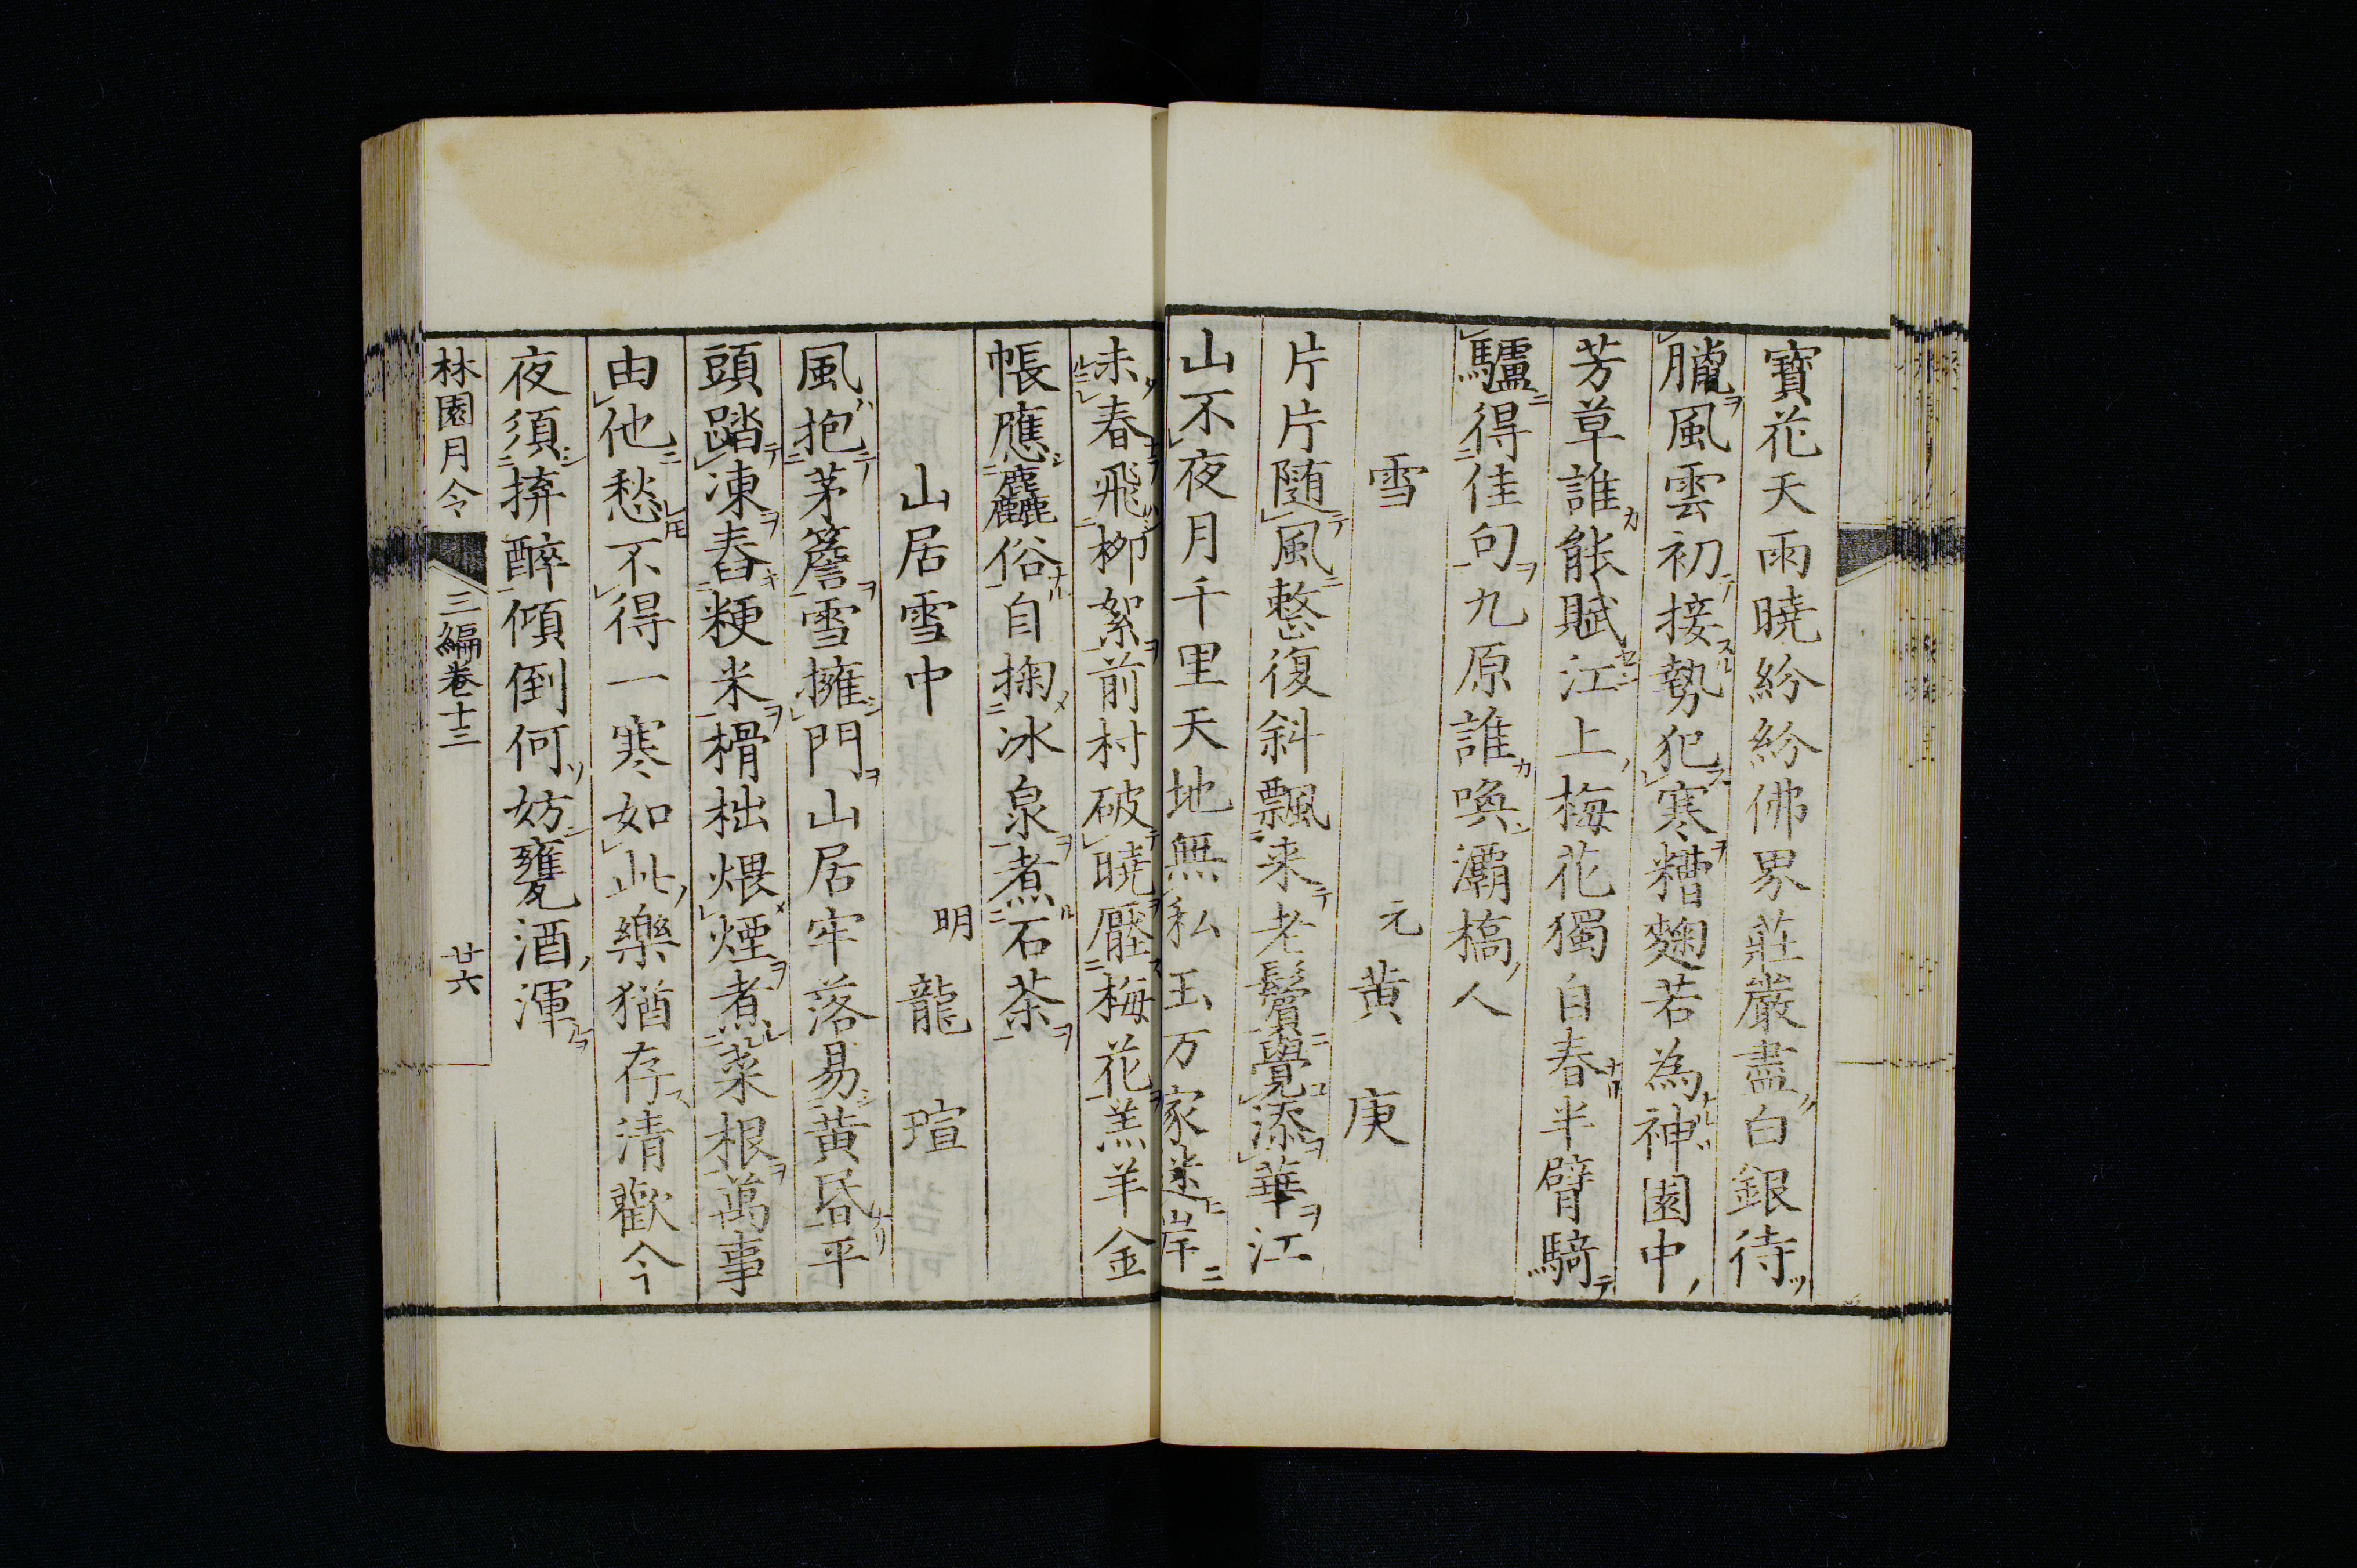 寶花天雨曉紛紛佛界莊嚴盡白銀待
朧風雲初接勢犯寒糟麹若為神園中
芳草誰能賦江上梅花獨自春半臂騎
驢得佳句九原誰喚灞橋人
雪　元　黄庚
片片随風整復斜飄来老鬢覺添華江
山不夜月千里天地無私玉万家迷岸
未春飛柳絮前村破曉壓梅花羔羊金
帳應麤俗自掬氷泉煮石茶
山居雪中　明　龍瑄
風抱茅簷雪擁門山居牢落易黄昏平
頭踏凍舂粳米榾柮煨煙煮菜根萬事
由他愁不得一寒如此樂猶存清歡今
夜須拚醉傾倒何妨甕酒渾
林園月令　三編巻十三　廿六